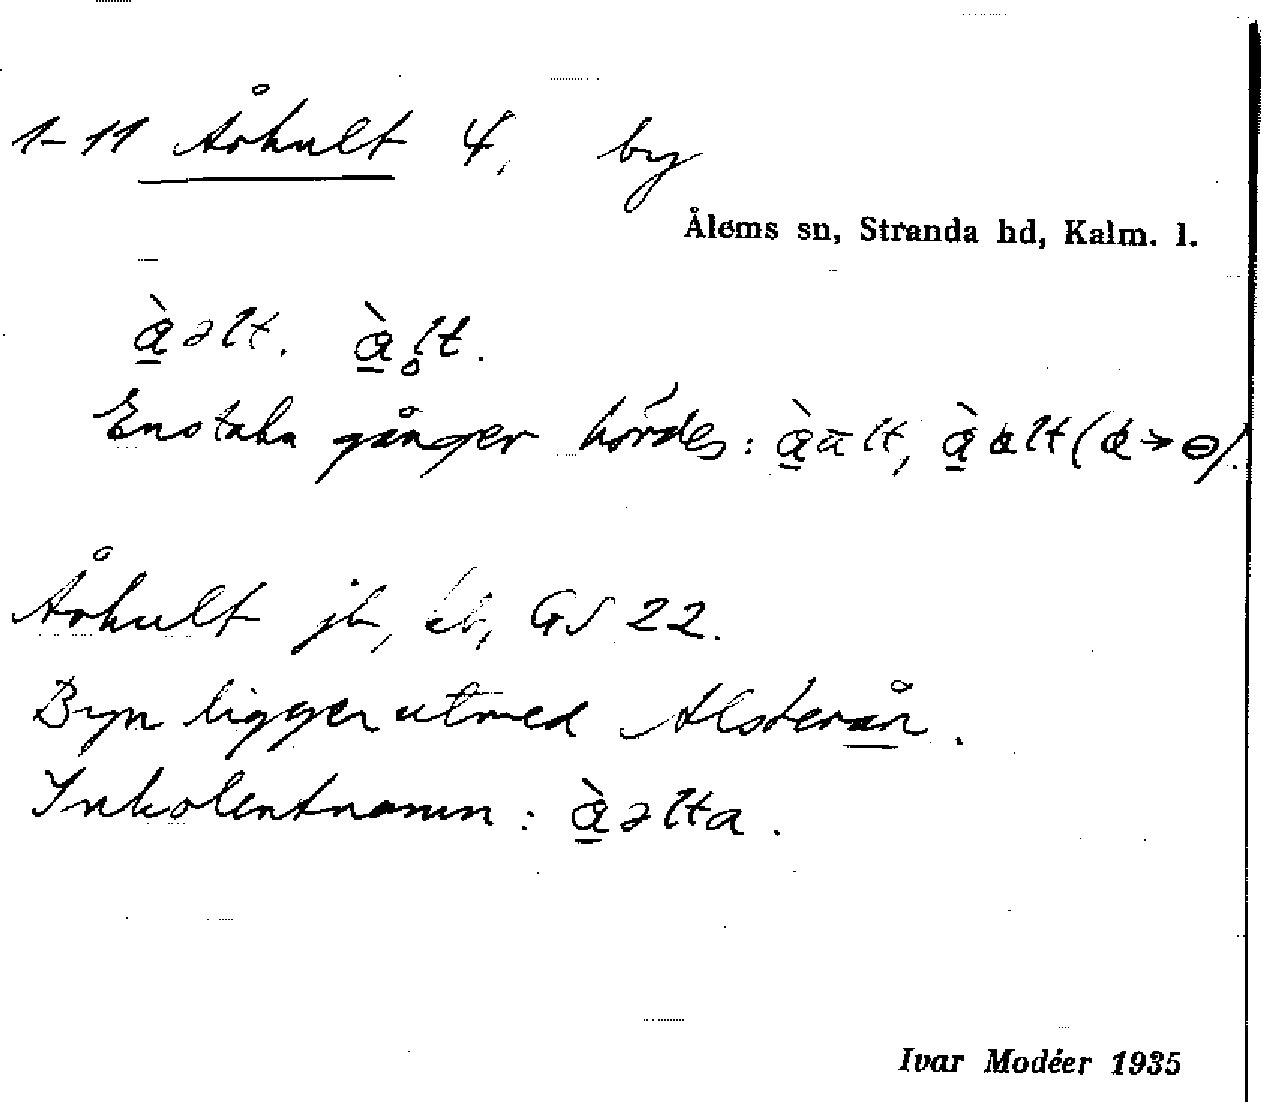 1-11 Århult 4, by
Ålems sn, Stranda hd, Kalm. l.
å̀əlt. å̀l̥t.
Enstaka gånger hördes:
Århult jb, GS 22.
Byn ligger utmed Alsterån.
Inkolentnamn: å̀əlta.
Ivar Modéer 1935